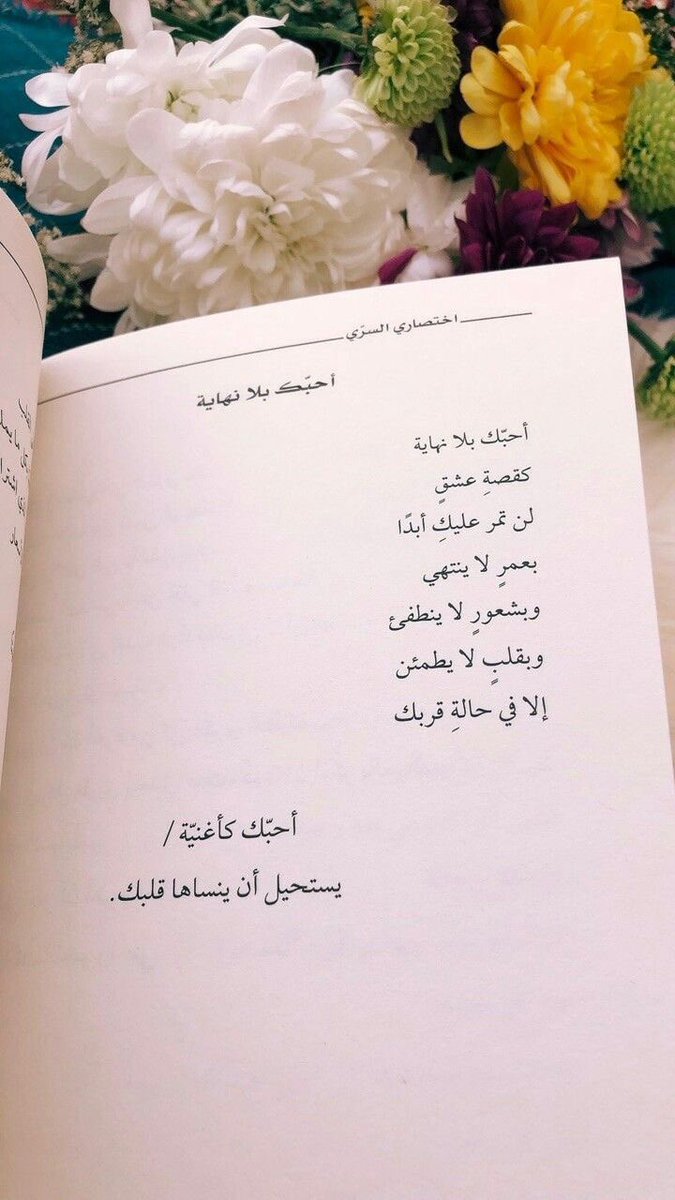 اختصاري السرّي
أحبّك بلا نهاية
أحبّك بلا نهاية
كقصةِ عشقٍ
لن تمر عليكِ أبدًا
بعمرٍ لا ينتهي
وبشعورٍ لا ينطفئ
وبقلبٍ لا يطمئن
إلا في حالةِ قربك
أحبّك كأغنيّة /
يستحيل أن ينساها قلبك.